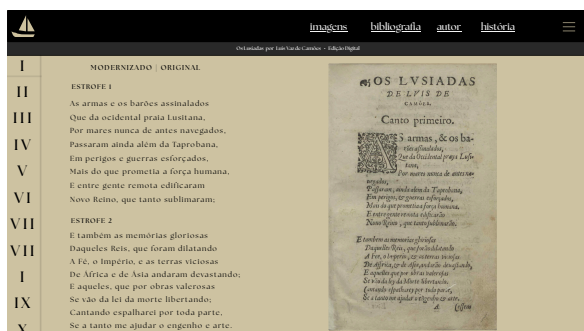 imagens bibliografia autor história
Os Lusíadas por Luís Vaz de Camões • Edição Digital
I
II
III
IV
V
VI
VII
VII
I
IX
X
MODERNIZADO | ORIGINAL
ESTROFE 1
As armas e os barões assinalados
Que da ocidental praia Lusitana,
Por mares nunca de antes navegados,
Passaram ainda além da Taprobana,
Em perigos e guerras esforçados,
Mais do que prometia a força humana,
E entre gente remota edificaram
Novo Reino, que tanto sublimaram;
ESTROFE 2
E também as memórias gloriosas
Daqueles Reis, que foram dilatando
A Fé, o Império, e as terras viciosas
De África e de Ásia andaram devastando;
E aqueles, que por obras valerosas
Se vão da lei da morte libertando;
Cantando espalharei por toda parte,
Se a tanto me ajudar o engenho e arte.
OS LVSIADAS
DE LVIS DE
CAMÕES.
Canto primeiro.
AS armas, & os ba-
rões assinalados,
Que da Occidental praya Lusi-
tana,
Por mares nunca de antes na-
uegados,
Passaram, ainda alem da Taprobana,
Em perigos, & guerras esforçados,
Mais do que prometia a força humana,
E entre gente remota edificarão
Nouo Reino, que tanto sublimarão.
E tambem as memorias gloriosas
Daquelles Reis, que forão dilatando
A Fee, o Imperio, & as terras viciosas
De Affrica, & de Asia, andarão deuastando,
E aquelles que por obras valerosas
Se vão da ley da Morte libertando,
Cantando espalharey por toda parte,
Se a tanto me ajudar o engenho & arte.
A